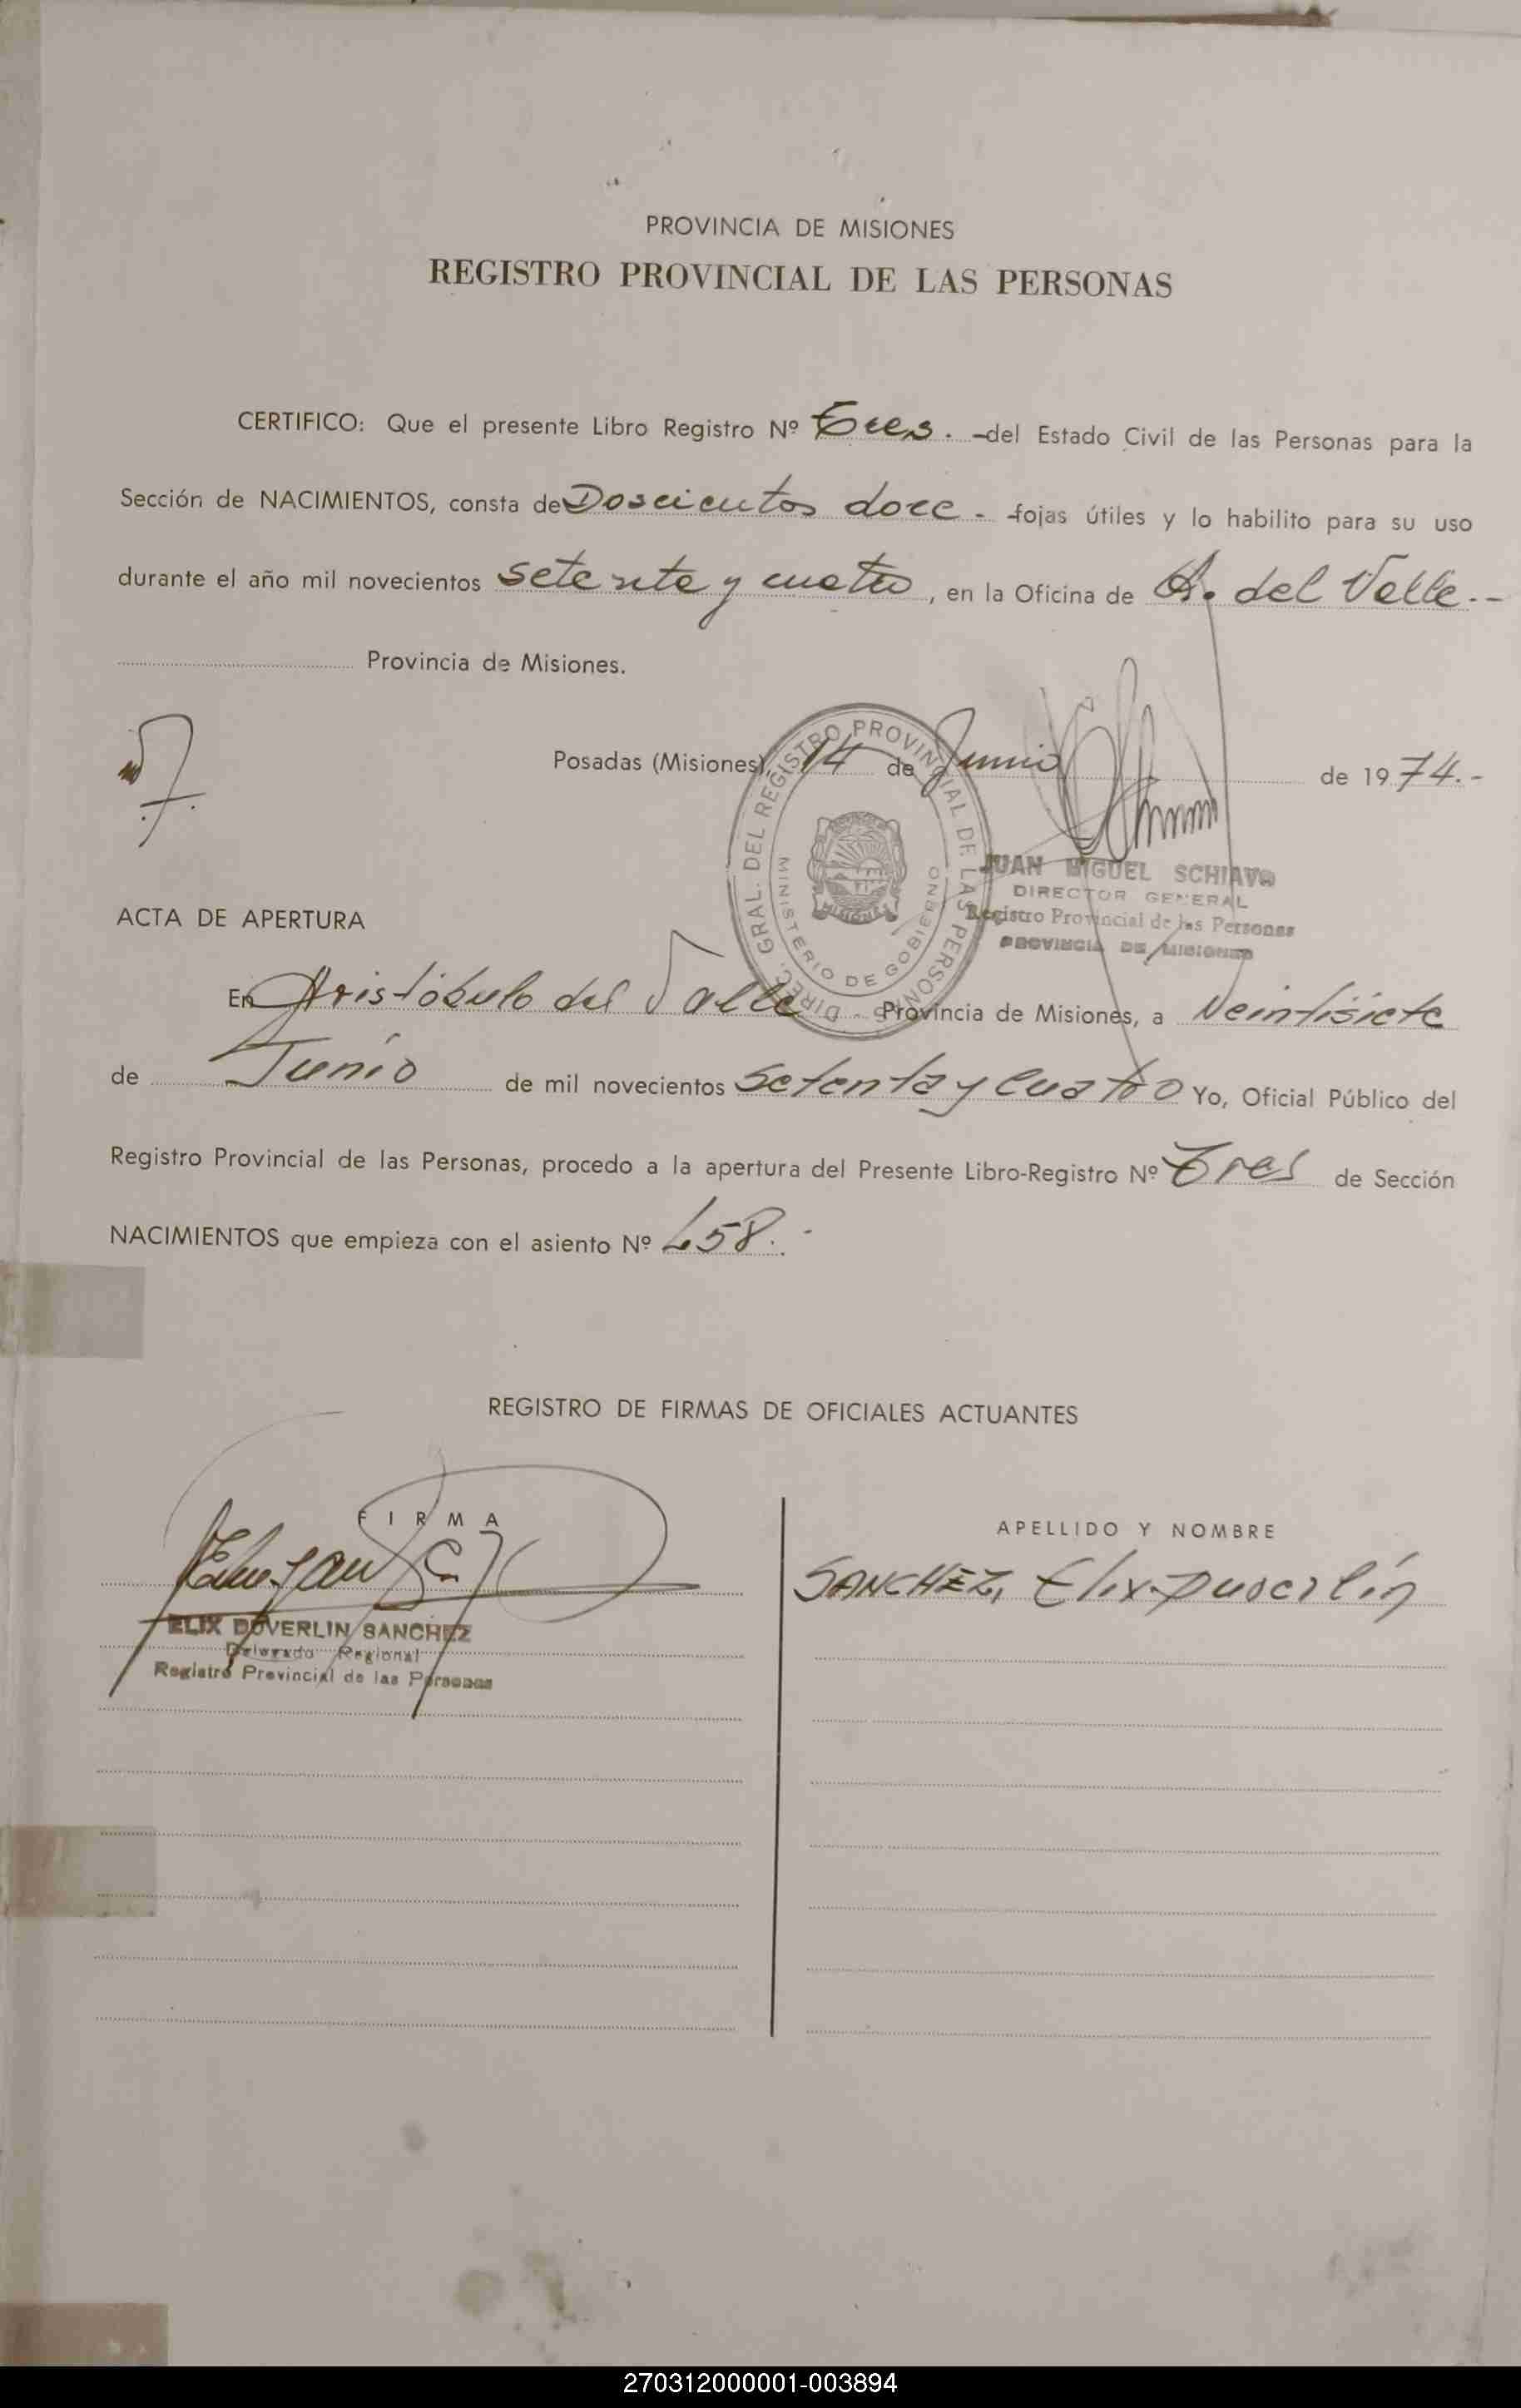 PROVINCIA DE MISIONES
REGISTRO PROVINCIAL DE LAS PERSONAS
CERTIFICO: Que el presente Libro Registro Nº Tres. -del Estado Civil de las Personas para la
Sección de NACIMIENTOS, consta de Doscientos doce - fojas útiles y lo habilito para su uso
durante el año mil novecientos setenta y cuatro, en la Oficina de A. del Valle.--
Provincia de Misiones.
Posadas (Misiones), 14 de Junio de 1974.-
DIREC. GRAL. DEL REGISTRO PROVINCIAL DE LAS PERSONAS -
MINISTERIO DE GOBIERNO
MISIONES
JUAN MIGUEL SCHIAVO
DIRECTOR GENERAL
Registro Provincial de las Personas
PROVINCIA DE MISIONES
ACTA DE APERTURA
En Aristóbulo del Valle Provincia de Misiones, a Veintisiete
de Junio de mil novecientos setenta y cuatro Yo, Oficial Público del
Registro Provincial de las Personas, procedo a la apertura del Presente Libro-Registro Nº Tres de Sección
NACIMIENTOS que empieza con el asiento Nº 458.-
REGISTRO DE FIRMAS DE OFICIALES ACTUANTES
FIRMA
APELLIDO Y NOMBRE
SANCHEZ, Elix Duverlín
ELIX DUVERLIN SANCHEZ
Delegado Regional
Registro Provincial de las Personas
270312000001-003894